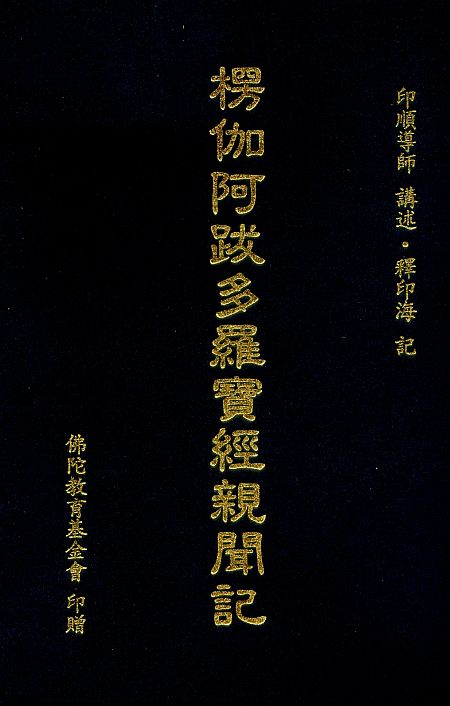 印順導師 講述・釋印海 記
楞伽阿跋多羅寶經親聞記
佛陀教育基金會 印贈